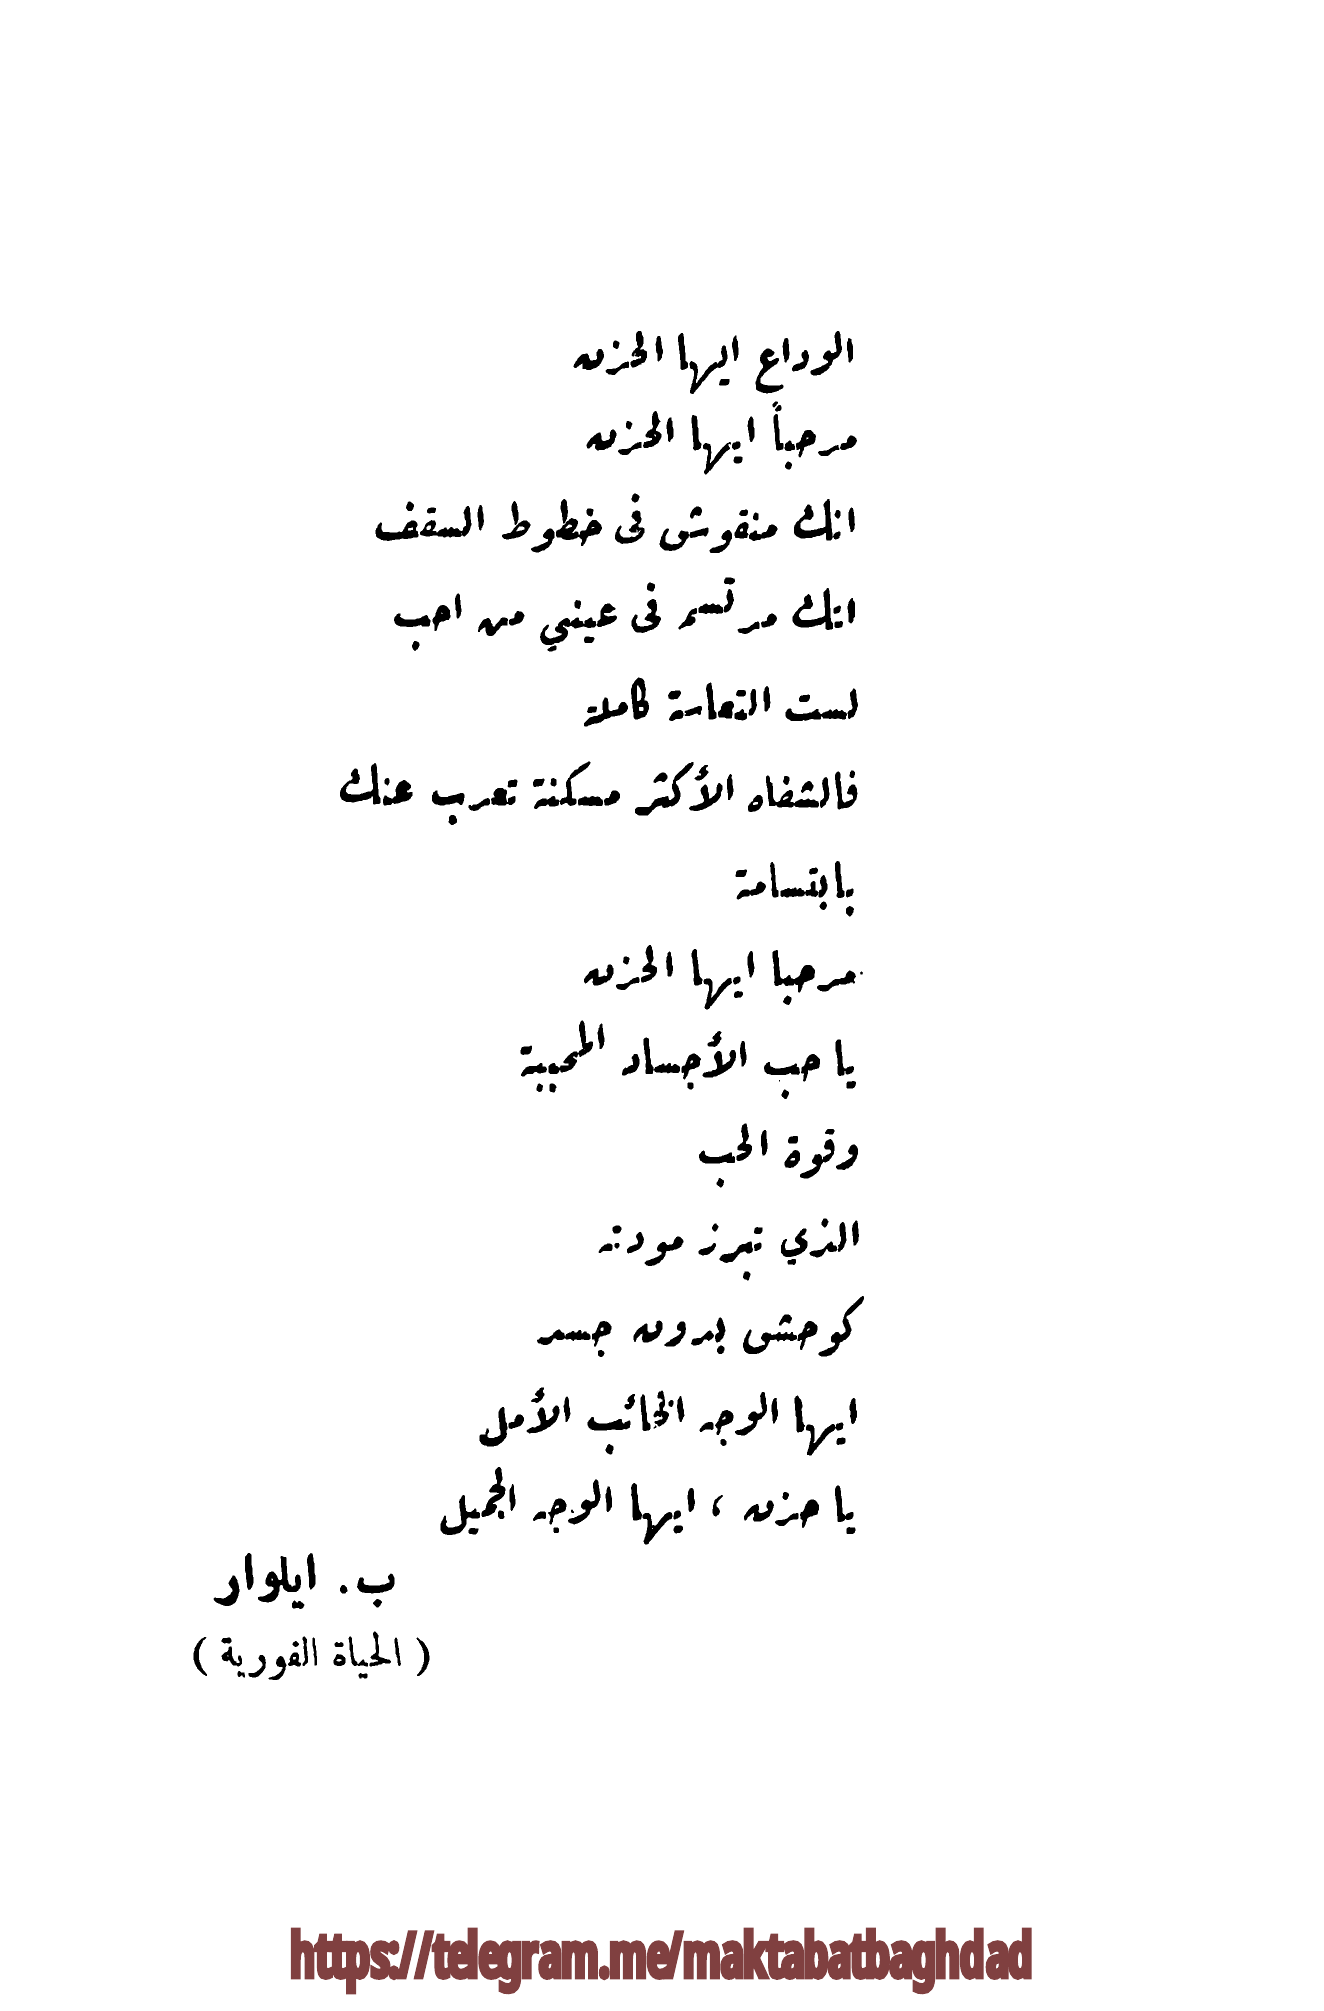 الوداع ايها الحزن
مرحباً ايها الحزن
انك منقوش في خطوط السقف
انك مرتسم في عيني من احب
لست التعاسة كاملة
فالشفاه الأكثر مسكنة تعرب عنك
بابتسامة
مرحبا ايها الحزن
يا حب الأجساد المحببة
وقوة الحب
الذي تبرز مودته
كوحش بدون جسد
ايها الوجه الخائب الأمل
يا حزن ، ايها الوجه الجميل
ب. ايلوار
( الحياة الفورية )
https://telegram.me/maktabatbaghdad